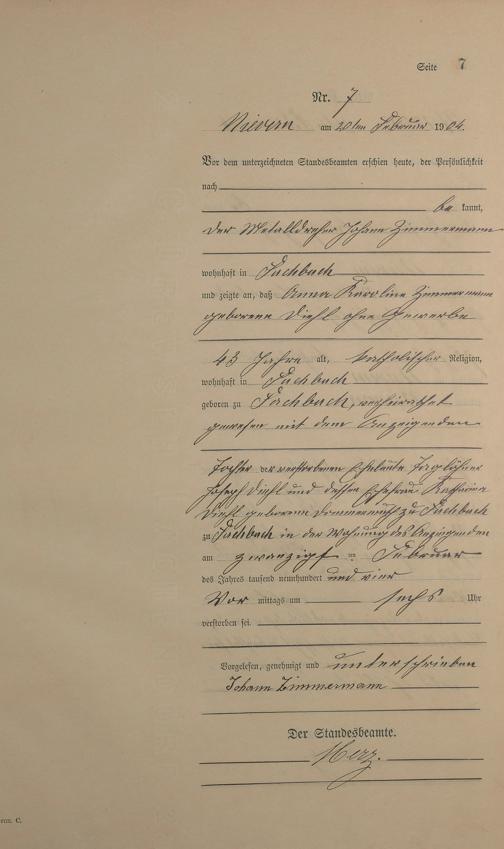 Seite 7
Nr. 7
Nievern am 20ten Februar 1904.
Vor dem unterzeichneten Standesbeamten erschien heute, der Persönlichkeit
nach
be kannt,
der Metalldreher Johann Zimmermann
wohnhaft in Fachbach
und zeigte an, daß Anna Karoline Zimmermann
geborene Diehl ohne Gewerbe
43 Jahre alt, katholischer Religion,
wohnhaft in Fachbach
geboren zu Fachbach, verheirathet
gewesen mit dem Anzeigenden
Tochter der verstorbenen Eheleute Taglöhner
Joseph Diehl und dessen Ehefrau Katharina
Diehl geborenen zu Fachbach
zu Fachbach in der Wohnung des Anzeigenden
am zwanzigsten Februar
des Jahres tausend neunhundert und vier
Vor mittags um sechs Uhr
verstorben sei.
Vorgelesen, genehmigt und unterschrieben
Johann Zimmermann
Der Standesbeamte.
Merz.
C.